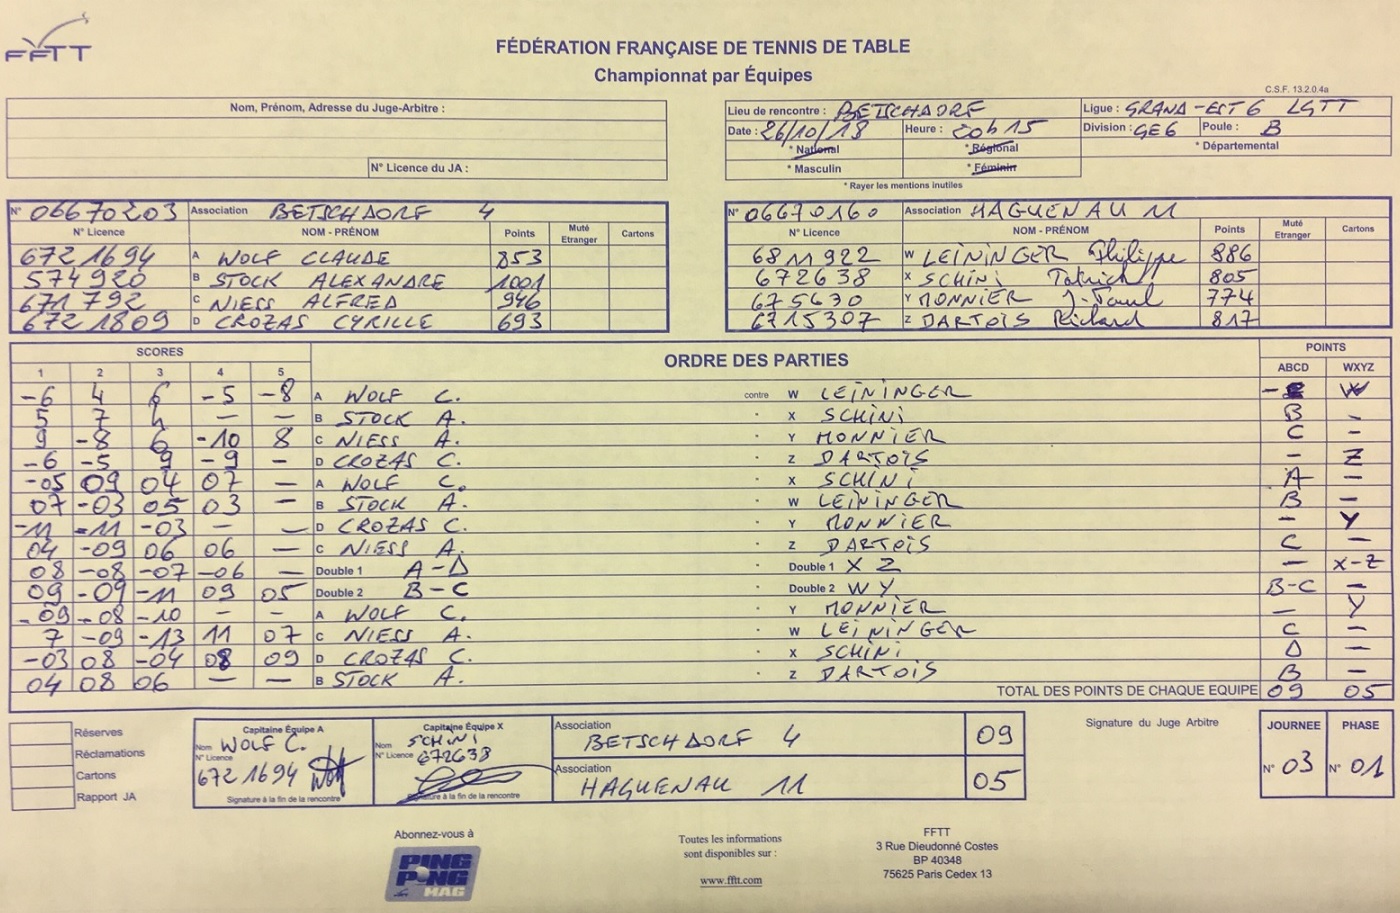 FFTT
FÉDÉRATION FRANÇAISE DE TENNIS DE TABLE
Championnat par Équipes
C.S.F. 13.2.0.4a
Nom, Prénom, Adresse du Juge-Arbitre :
N° Licence du JA :
Lieu de rencontre : BETSCHDORF Ligue : GRAND-EST 6 LGTT
Date : 26/10/18 Heure : 20h15 Division : GE6 Poule : B
* National * Régional * Départemental
* Masculin * Féminin
* Rayer les mentions inutiles
N° 06670203 Association BETSCHDORF 4
N° Licence NOM - PRÉNOM Points Muté Etranger Cartons
6721694 A WOLF CLAUDE 853
574920 B STOCK ALEXANDRE 1001
671792 C NIESS ALFRED 946
6721809 D CROZAS CYRILLE 693
N° 06670160 Association HAGUENAU 11
N° Licence NOM - PRÉNOM Points Muté Etranger Cartons
6811922 W LEININGER Philippe 886
672638 X SCHINI Patrick 805
675630 Y MONNIER J-Paul 774
6715307 Z DARTOIS Richard 817
SCORES ORDRE DES PARTIES POINTS
1 2 3 4 5 ABCD WXYZ
-6 4 6 -5 -8 A WOLF C. contre W LEININGER - W
5 7 4 - - B STOCK A. X SCHINI B -
9 -8 6 -10 8 C NIESS A. Y MONNIER C -
-6 -5 9 -9 - D CROZAS C. Z DARTOIS - Z
-05 09 04 07 - A WOLF C. X SCHINI A -
07 -03 05 03 - B STOCK A. W LEININGER B -
-11 -11 -03 - - D CROZAS C. Y MONNIER - Y
04 -09 06 06 - C NIESS A. Z DARTOIS C -
08 -08 -07 -06 - Double 1 A-D Double 1 X Z - X-Z
09 -09 -11 09 05 Double 2 B-C Double 2 W Y B-C -
-09 -08 -10 - - A WOLF C. Y MONNIER - Y
7 -09 -13 11 07 C NIESS A. W LEININGER C -
-03 08 -04 08 09 D CROZAS C. X SCHINI D -
04 08 06 - - B STOCK A. Z DARTOIS B -
TOTAL DES POINTS DE CHAQUE EQUIPE 09 05
Réserves
Réclamations
Cartons
Rapport JA
Capitaine Équipe A
Nom WOLF C.
N° Licence
6721694 Wolf
Signature à la fin de la rencontre
Capitaine Équipe X
Nom SCHINI
N° Licence 672638
Signature à la fin de la rencontre
Association
BETSCHDORF 4 09
Association
HAGUENAU 11 05
Signature du Juge Arbitre
JOURNEE PHASE
N° 03 N° 01
Abonnez-vous à
PING
PONG
MAG
Toutes les informations
sont disponibles sur :
www.fftt.com
FFTT
3 Rue Dieudonné Costes
BP 40348
75625 Paris Cedex 13